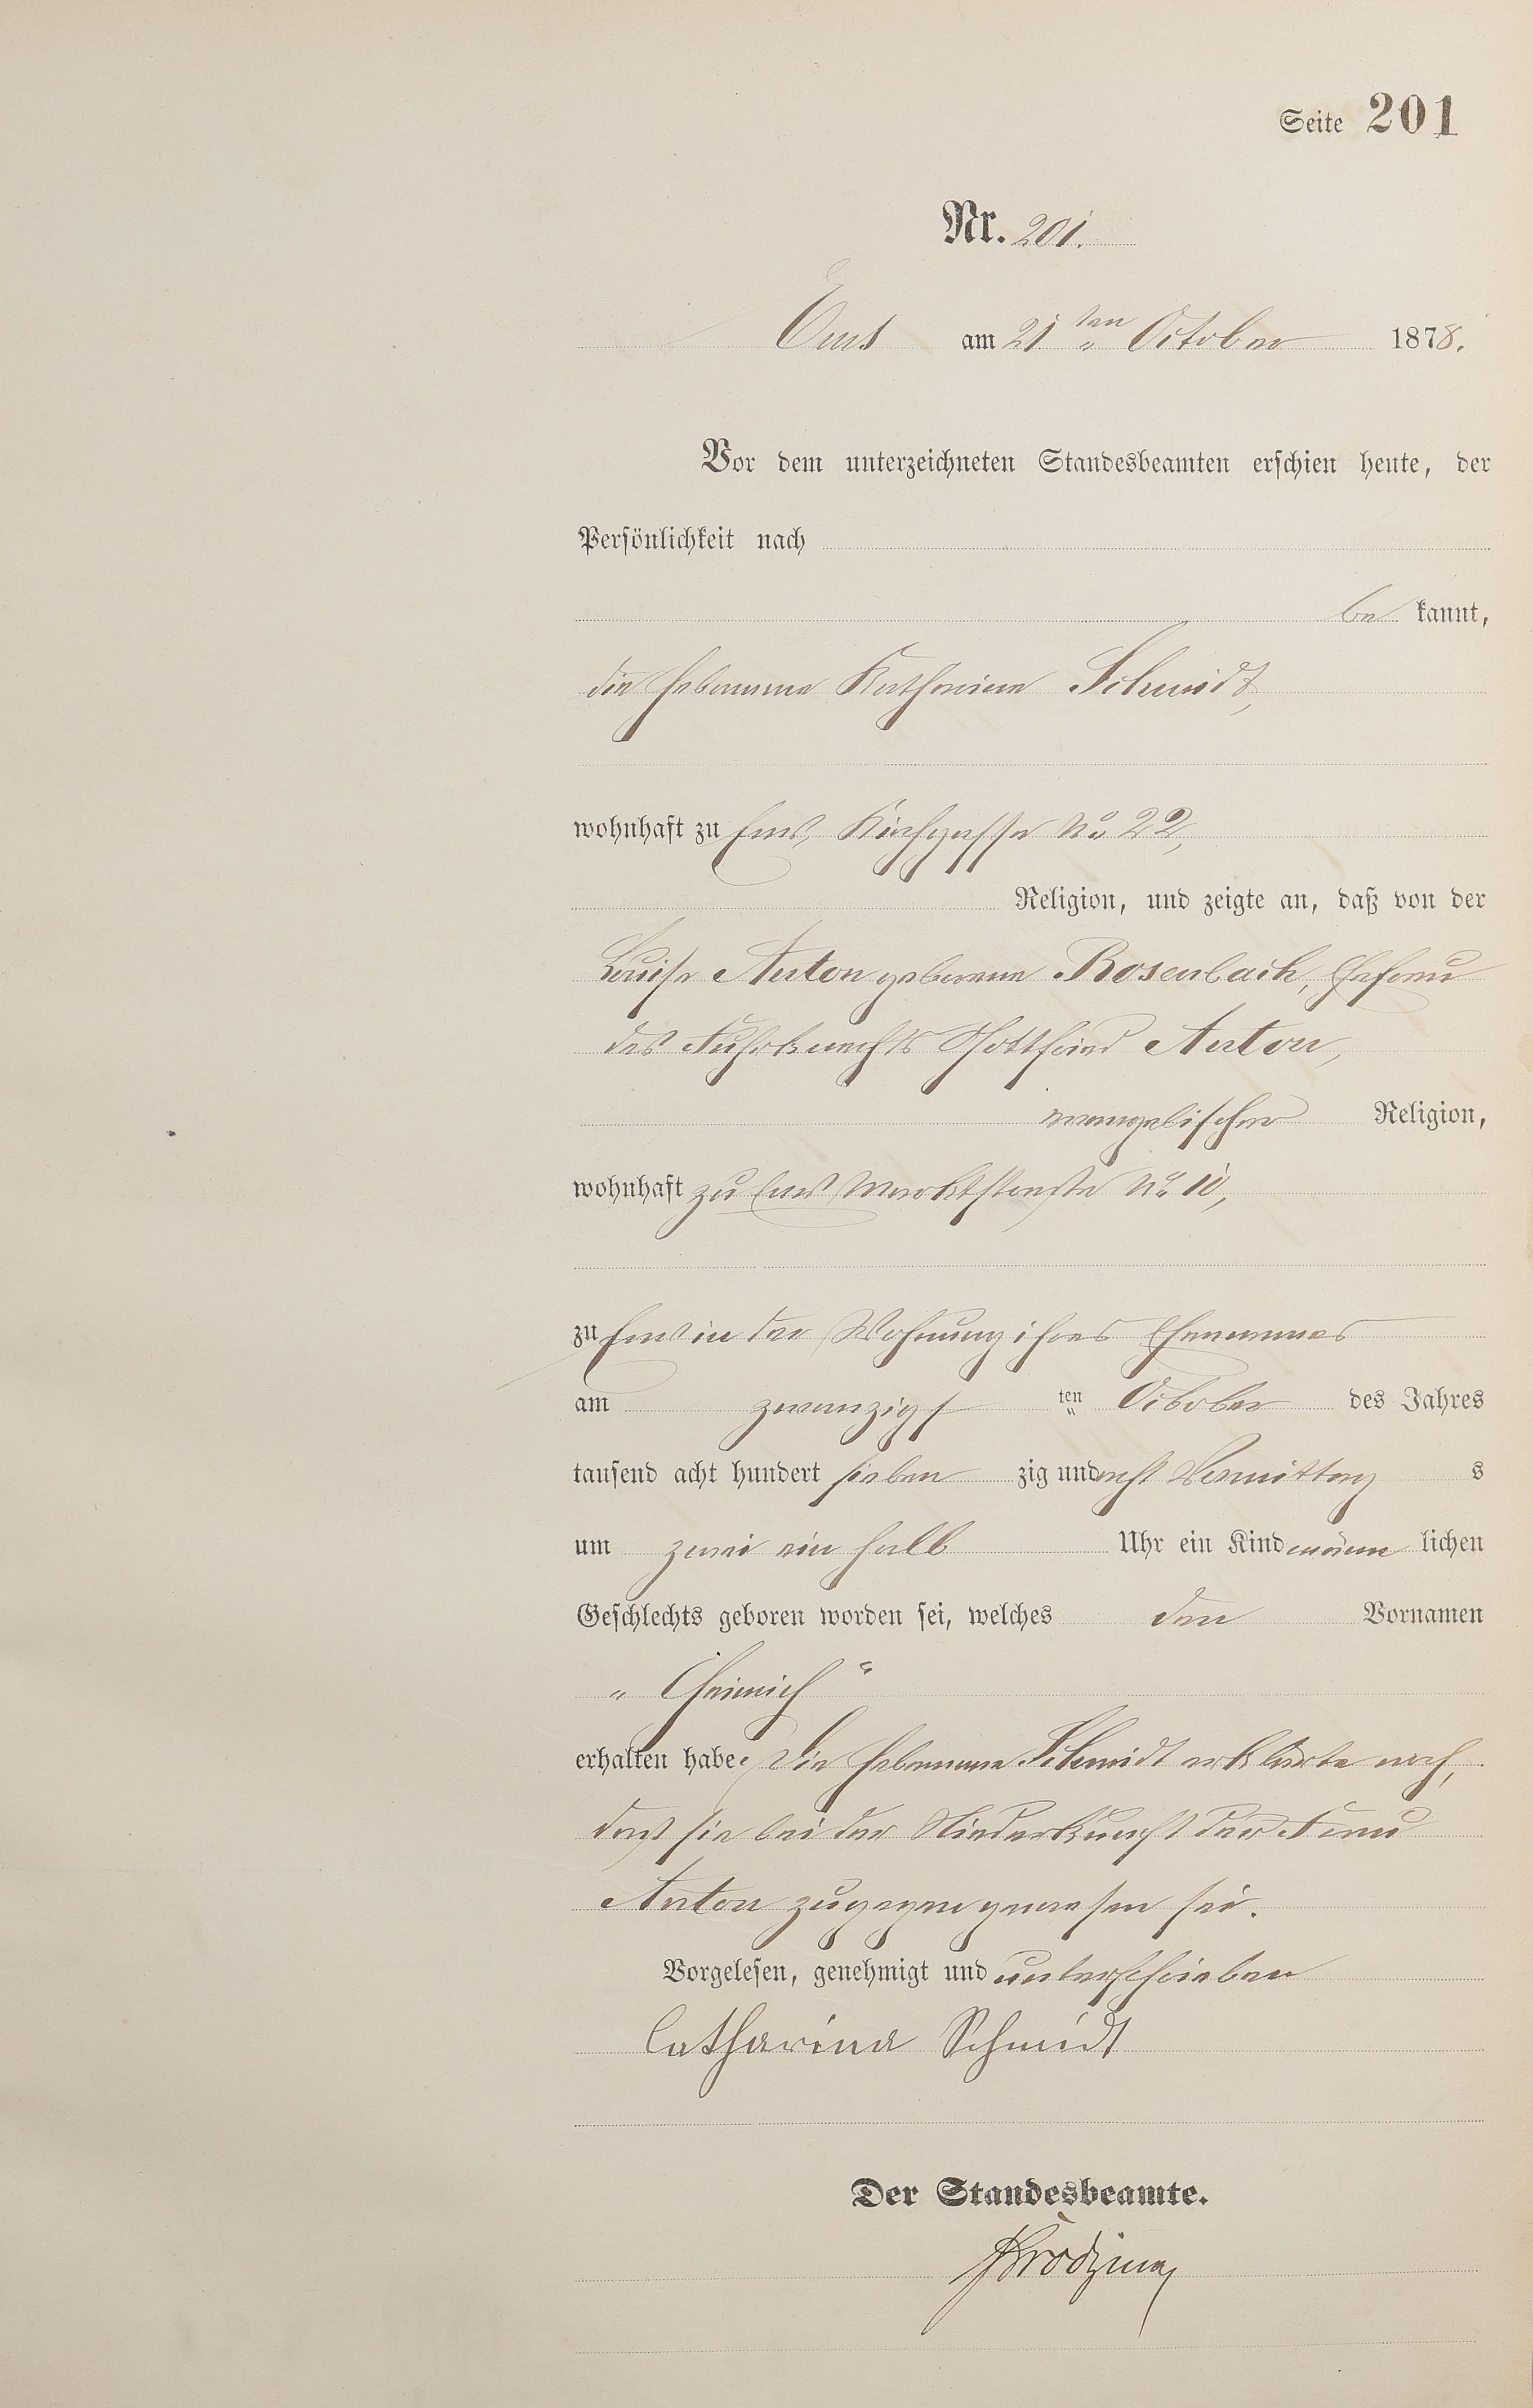 Seite 201
Nr. 201.
Ems am 21ten October 1878.
Vor dem unterzeichneten Standesbeamten erschien heute, der
Persönlichkeit nach
be kannt,
die Hebamme Katharina Schmidt,
wohnhaft zu Ems, Kirchgasse No. 22,
Religion, und zeigte an, daß von der
Louise Anton geborene Rosenbach, Ehefrau
des Fuhrknechts Gottfried Anton,
evangelischer Religion,
wohnhaft zu Ems Marktstraße No. 10,
zu Ems in der Wohnung ihres Ehemannes
am zwanzigs ten October des Jahres
tausend acht hundert sieben zig und acht Vormittag s
um zwei ein halb Uhr ein Kind männ lichen
Geschlechts geboren worden sei, welches den Vornamen
„ Heinrich “
erhalten habe. Die Hebamme Schmidt erklärte noch,
daß sie bei der Niederkunft der Frau
Anton zugegen gewesen sei.
Vorgelesen, genehmigt und unterschrieben
Catharina Schmidt
Der Standesbeamte.